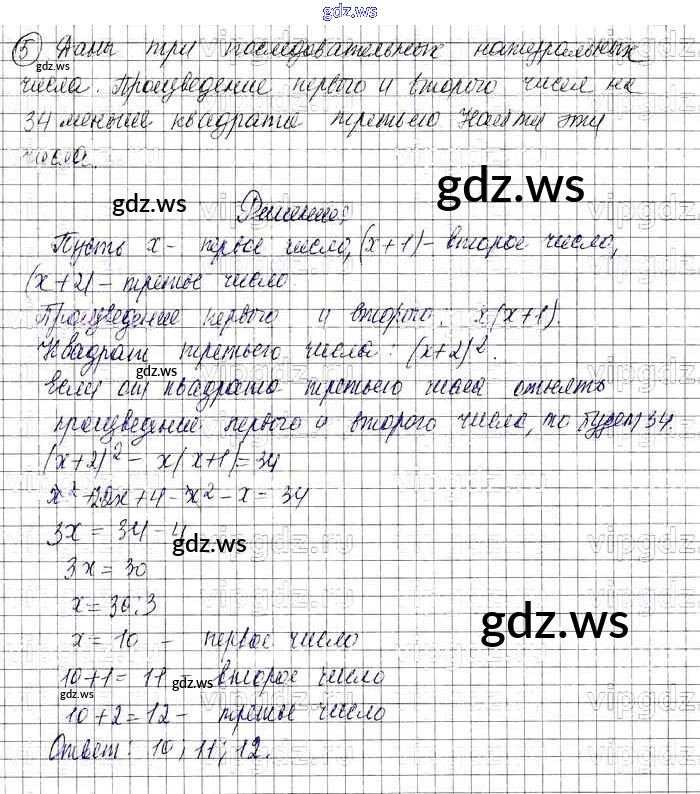 gdz.ws
5 Даны три последовательных натуральных
gdz.ws
числа. Произведение первого и второго чисел на
34 меньше квадрата третьего Найти эти
числа.
gdz.ws
gdz.ws
Решение:
Пусть x - первое число, (x+1) - второе число,
(x+2) - третье число
Произведение первого и второго: x(x+1).
Квадрат третьего числа: (x+2)².
gdz.ws
Если от квадрата третьего числа отнять
произведение первого и второго числа, то будет 34.
(x+2)² - x(x+1)=34
x²+22x+4-x²-x=34
3x=34-4
gdz.ws
3x=30
x=30:3
gdz.ws
x=10 - первое число
10+1=11 - второе число
gdz.ws
gdz.ws
10+2=12 - третье число
Ответ: 10; 11; 12.